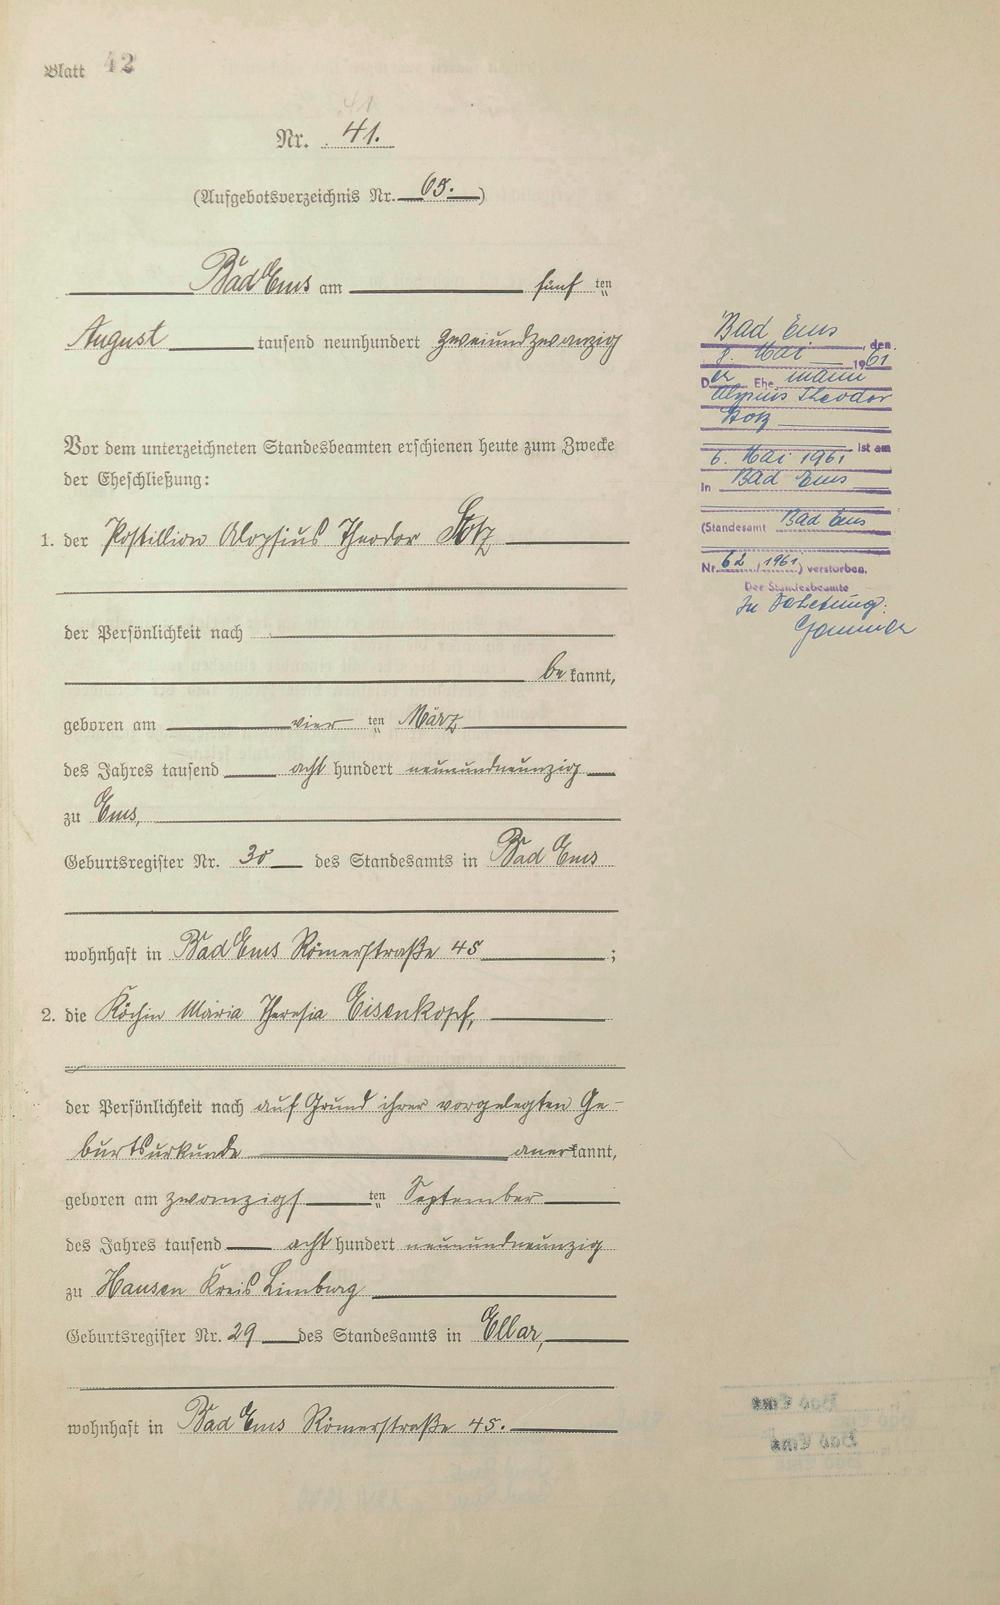 Blatt 42
41
Nr. 41.
(Aufgebotsverzeichnis Nr. 65.)
Bad Ems am fünf ten
August tausend neunhundert zweiundzwanzig
Vor dem unterzeichneten Standesbeamten erschienen heute zum Zwecke
der Eheschließung:
1. der Postillion Aloysius Theodor Stotz
der Persönlichkeit nach
be kannt,
geboren am vier ten März
des Jahres tausend acht hundert neunundneunzig
zu Ems,
Geburtsregister Nr. 30 des Standesamts in Bad Ems
wohnhaft in Bad Ems Römerstraße 45 ;
2. die Köchin Maria Theresia Eisenkopf,
der Persönlichkeit nach auf Grund ihrer vorgelegten Ge-
burtsurkunde anerkannt,
geboren am zwanzigs ten September
des Jahres tausend acht hundert neunundneunzig
zu Hausen Kreis Limburg
Geburtsregister Nr. 29 des Standesamts in Ellar,
wohnhaft in Bad Ems Römerstraße 45.
Bad Ems, den
8. Mai 1961
Der Ehemann
Aloysius Theodor
Stotz
ist am
6. Mai 1961
in Bad Ems
(Standesamt Bad Ems
Nr. 62/1961) verstorben.
Der Standesbeamte
In Vertretung: